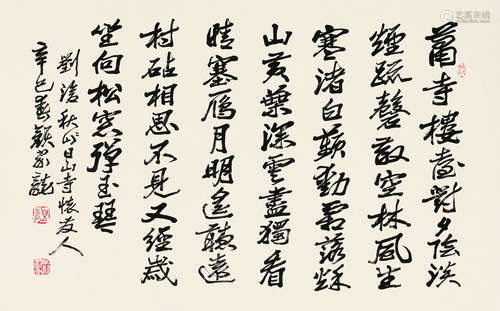 蕭寺樓臺對夕陰淡
煙疏磬散空林風生
寒渚白蘋動霜落秋
山黃葉深雲盡獨看
晴塞鴈月明遙聽遠
村砧相思不見又經歲
坐向松窗彈玉琴
劉滄秋日山寺懷友人
辛巳春顧家龍